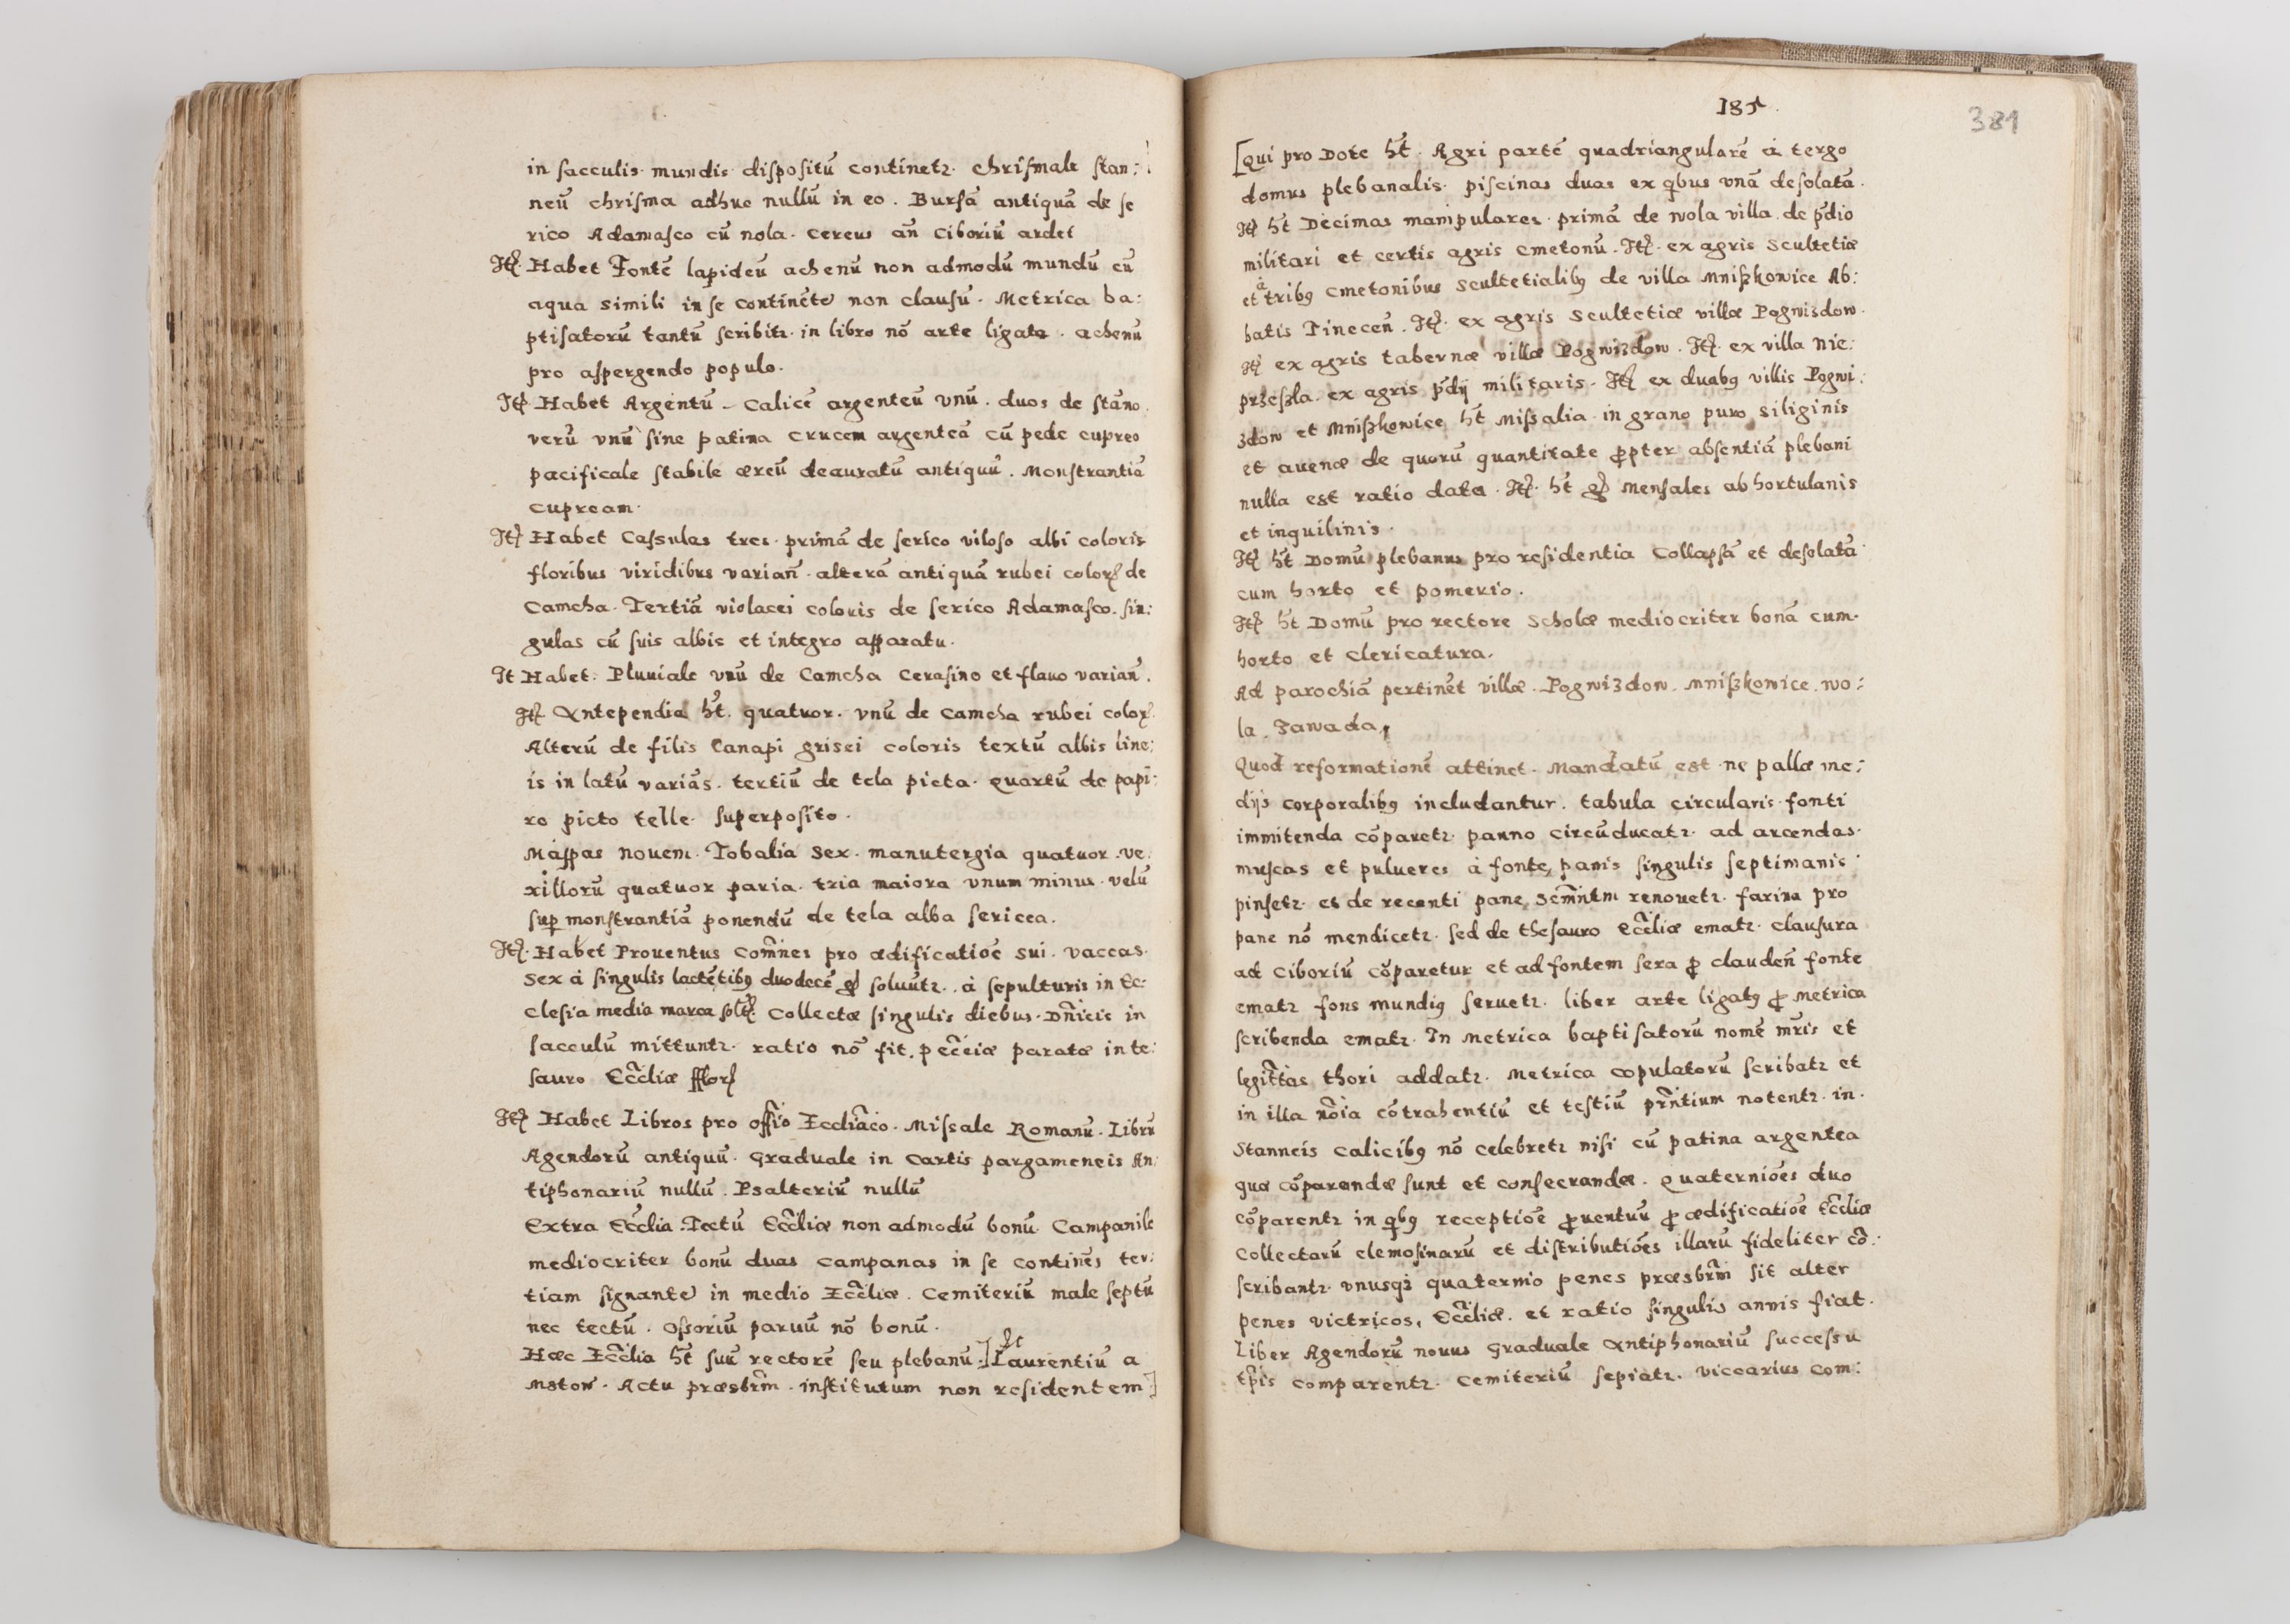 in sacculis mundis dispositū continetꝛ. Chrismale stan:
neū chrisma adhuc nullū in eo. Bursā antiquā de se
rico Adamasco cū nola. Cereus añ Ciboriū ardet
Itē. Habet Fontē lapideū achenū non admodū mundū cū
aqua simili in se continēte non clausū. Metrica ba:
ptisatorū tantū scribitꝛ in libro nō arte ligato. achenū
pro aspergendo populo.
Itē Habet Argentū. Calicē argenteū vnū. duos de stāno.
verū vnū sine patina crucem argenteā cū pede cupreo
pacificale stabile æreū deauratū antiquū. Monstrantiā
cupream.
Itē Habet Cassulas tres. primā de serico viloso albi coloris
floribus viridibus variañ. alterā antiquā rubei colorꝭ de
Camcha. Tertiā violacei coloris de serico Adamasco. sin:
gulas cū suis albis et integro apparatu.
It Habet. Pluuiale vnū de Camcha Cerasino et flauo variañ.
Itē Antependia hēt. quatuor. vnū de Camcha rubei colorꝭ.
Alterū de filis Canapi grisei coloris textū albis line:
is in latū variās. tertiū de tela picta. Quartū de papi:
ro picto telle superposito.
Mappas nouem. Tobalia Sex. manutergia quatuor. ve:
xillorū quatuor paria. tria maiora vnum minus. velū
sup monstrantiā ponendū de tela alba sericea.
Itē. Habet Prouentus Com̃nes pro ædificatiōe sui. vaccas.
Sex à singulis lactētibꝰ duodecē gꝭ soluūtꝛ. à sepulturis in Ec:
clesia media marca solꝭ. Collectæ singulis diebus. Dñicis in
sacculū mittuntꝛ. ratio nō fit. pecc̃iæ paratæ in te:
sauro Ecc̃liæ fflorꝭ
Itē Habet Libros pro offĩo Eccliãco. Missale Romanū. Librū
Agendorū antiquū. Graduale in Cartis pargameneis An:
tiphonariū nullū. Psalteriū nullū
Extra Ecc̃lia. Tectū Ecc̃liæ non admodū bonū. Campanile
mediocriter bonū duas campanas in se continēs ter:
tiam signante in medio Ecc̃liæ. Cemiteriū male septū
nec tectū. Ossoriū paruū nō bonū.
Hæc Ecc̃lia hēt suū rectorē seu plebanū.] Laurentiū a
Mstow. Actu præsbr̃m. institutum non residentem]
185.
381
[Qui pro Dote hēt. Agri partē quadriangularē à tergo
domus plebanalis. piscinas duas ex qͥbus vnā desolatā.
Itē hēt Decimas manipulares. primā de Wola villa. de p̄dio
militari et certis agris Cmetonū. Itē. ex agris Scultetiæ
et à tribꝰ Cmetonibus Scultetialibꝰ de villa Mniszkowice Ab:
batis Tineceñ. Itē. ex agris Scultetiæ villæ Pogwizdow.
Itē ex agris tabernæ villæ Pogwizdow. Itē. ex villa Nie:
przeszla. ex agris p̄dij militaris. Itē ex duabꝰ villis Pogwi:
zdow et Mniszkowice hēt Missalia in grano puro siliginis
et auenæ de quorū quantitate ꝓpter absentiā plebani
nulla est ratio data. Itē. hēt gꝭ Mensales ab hortulanis
et inquilinis.
Itē hēt Domū plebanus pro residentia Collapsā et desolatā
cum horto et pomerio.
Itē hēt Domū pro rectore Scholæ mediocriter bonā cum.
horto et clericatura.
Ad parochiā pertinēt villæ. Pogwizdow. Mniszkowice. Wo:
la. Zawada,
Quod reformationē attinet. Mandatū est ne pallæ me:
dijs corporalibꝰ includantur. tabula circularis fonti
immitenda cōparetꝛ. panno circūducatꝛ ad arcendas.
muscas et pulueres à fonte, panis singulis septimanis
pinsetꝛ et de recenti pane Scm̃ntm renouetꝛ. farina pro
pane nō mendicetꝛ. sed de thesauro Ecc̃liæ ematꝛ. Clausura
ad Ciboriū cōparetur et ad fontem sera ꝓ claudeñ fonte
ematꝛ fons mundiꝰ seruetꝛ. liber arte ligatꝰ ꝓ Metrica
scribenda ematꝛ. In Metrica baptisatorū nomē mr̃is et
legittãs thori addatꝛ. Metrica copulatorū scribatꝛ et
in illa nōia cōtrahentiū et testiū pr̃ntium notentꝛ. in.
Stanneis Calicibꝰ nō celebretꝛ nisi cū patina argentea
quæ cōparandæ sunt et consecrandæ. Quaterniōes duo
cōparentꝛ in qͥbꝰ receptiōe ꝓuentuū ꝓ ædificatiōe Ecc̃liæ
Collectarū elemosinarū et distributiōes illarū fideliter cō:
scribantꝛ vnusqꝫ quaternio penes præsbr̃m sit alter
penes victricos, Ecc̃liæ. et ratio singulis annis fiat.
Liber Agendorū nouus Graduale Antiphonariū successu
tp̃is comparentꝛ. Cemiteriū sepiatꝛ. viccarius com: